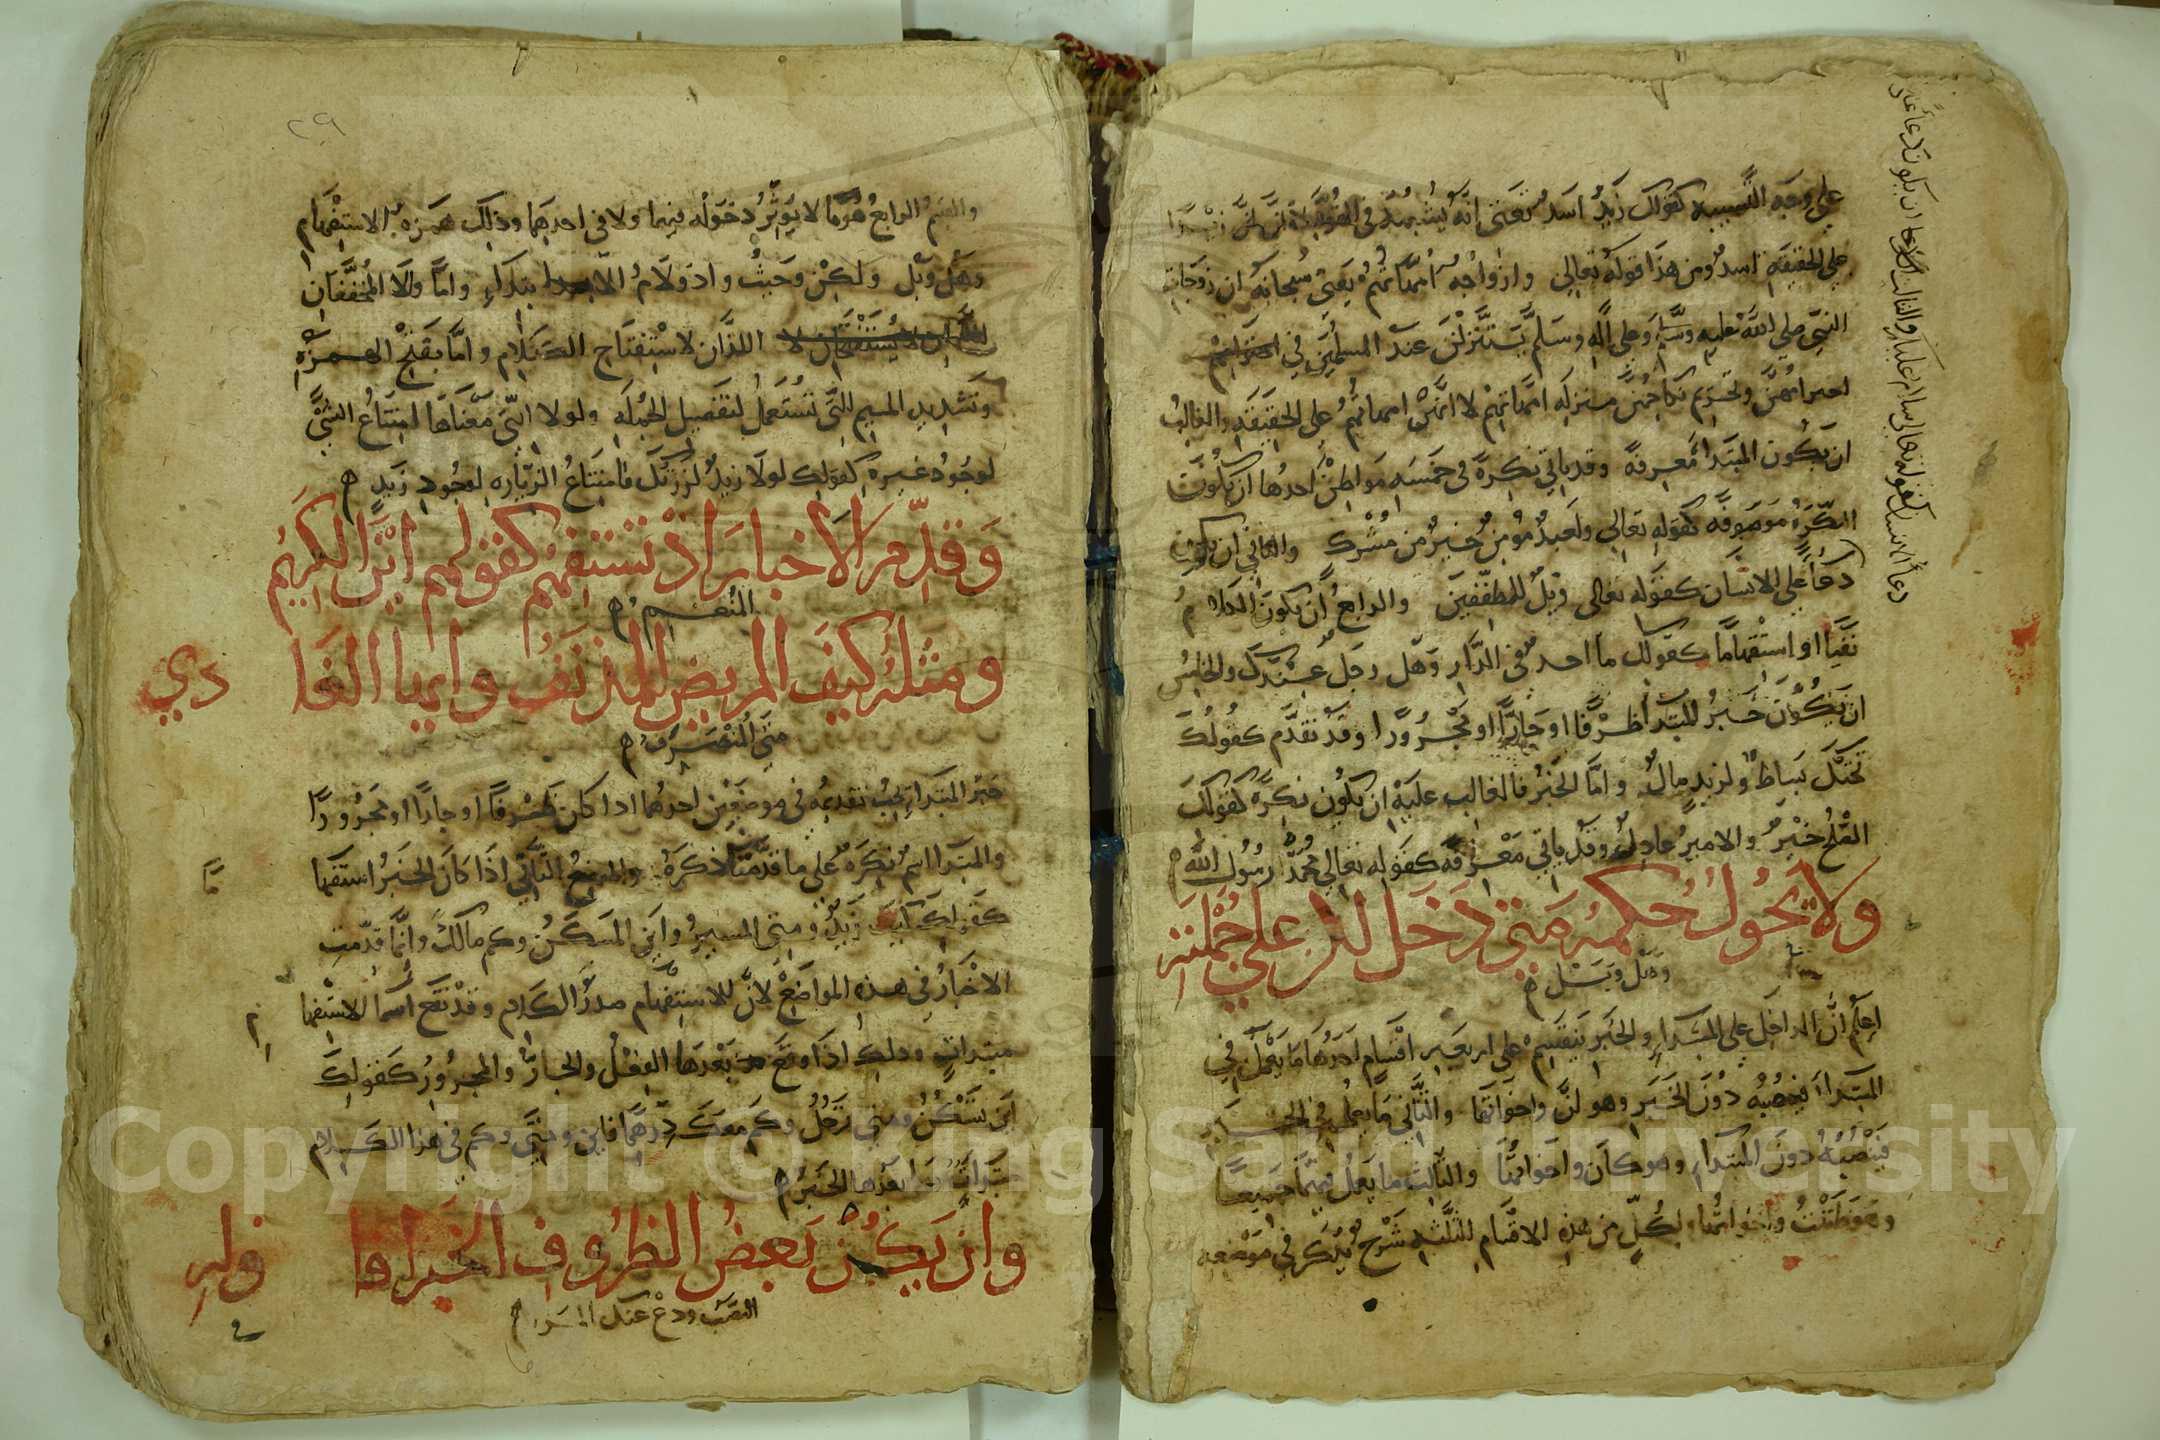 على وجه التشبيه كقولك زيد اسد تعنى انه يشبهه في القوة لا
على الحقيقه اسد ومن هذا قوله تعالى وازواجه امهاتهم يعنى سبحانه ان زوجات
النبي صلى الله عليه وسلم وعلى اله وسلم يتنزلن عند المسلمين في احترامهم
احترامهن وتحريم نكاحهن منزله امهاتهم لا انهن امهاتهم على الحقيقه والغالب
ان يكون المبتدا معرفة وقد ياتي نكرة في خمسه مواطن احدها ان يكون
النكرة موصوفه كقوله تعالى ولعبد مؤمن خير من مشرك والثاني ان يكون
دعاً على الانسان كقوله تعالى ويل للمطففين والرابع ان يكون الكلام
نفيا او استفهاما كقولك ما احد في الدار وهل رجل عندك والخامس
ان يكون خبر المبتدا ظرفا او جارا او مجرورا وقد تقدم كقولك
تحتك بساط ولزيد مال واما الخبر فالغالب عليه ان يكون نكره كقولك
الصلح خير والامير عادل وقد ياتي معرفه كقوله تعالى محمد رسول الله
ولا يحول حكمه متى دخل لكن على جملته
وهل وبل
اعلم ان الداخل على المبتداء والخبر ينقسم على اربعه اقسام احدها ما يعمل في
المبتدا فينصبه دون الخبر وهو ان واخواتها والثاني ما يعمل في الخبر
فينصبه دون المبتداء وهو كان واخواتها والثالث ما يعمل فيهما جميعا
وهو ظننت واخواتها ولكل من هذه الاقسام الثلثه شرح يذكر في موضعه
ان يكون دعائا
والثالث
كقوله تعالى سلام عليكم
دعا الانسان
٢٩
والقسم الرابع هو ما لا يؤثر دخوله فيهما ولا في احدهما وذلك همزه الاستفهام
وهل وبل ولكن وحيث واذ ولام الابتداء واما والا المخففان
اللذان لاستفتاح الكلام واما بفتح الهمزه
وتشديد الميم التي تستعمل لتفصيل الجمله ولولا التي معناها امتناع الشي
لوجود غيره كقولك لولا زيد لزرتك فامتناع الزياره لوجود زيد
وقدم الاخبار اذ تستفهم كقولهم اين الكريم
المنعم
ومثله كيف المريض المدنف وايها الغا
دي
متى المنصرف
خبر المبتداء يجب تقديمه في موضعين احدهما اذا كان ظرفا او جارا او مجرورا
والمبتدا اسم نكرة على ما قدمنا ذكره والموضع الثاني اذا كان الخبر استفها
ما
كقولك كيف زيد ومتى المسير واين المسكن وكم مالك وانما قدمت
الاخبار في هذه المواضع لان للاستفهام صدر الكلام وقد تقع أسما الاستفها
م
مبتدات وذلك اذا وقع بعدها الفعل والجار والمجرور كقولك
اين تسكن ومتى ترحل وكم معك درهما فاين ومتى وكم في هذا الكلام
مبتدات وما بعدها الخبر
وان يكن بعض الظروف الخبرا فا
وله
النصب ودع عنك المرا